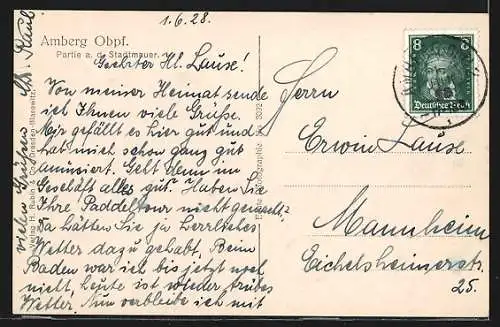 1.6.28.
Amberg Obpf.
Partie a. d. Stadtmauer.
Geehrter Hl. Lause!
Von meiner Heimat sende
ich Ihnen viele Grüße.
Mir gefällt es hier gut und
hat mich schon ganz gut
amüsiert. Geht denn im
Geschäft alles gut? Haben Sie
Ihre Paddeltour nicht gemacht?
Da hätten Sie ja herrliches
Wetter dazu gehabt. Beim
Baden war ich bis jetzt noch
nicht, heute ist wieder trübes
Wetter. Nun verbleibe ich mit
vielen Grüßen
Verlag H. Rubin & Co., Dresden-Blasewitz.
Echte Photographie
8 8
Deutsches Reich
Herrn
Erwin Lause
Mannheim
Eichelsheimerstr.
25.